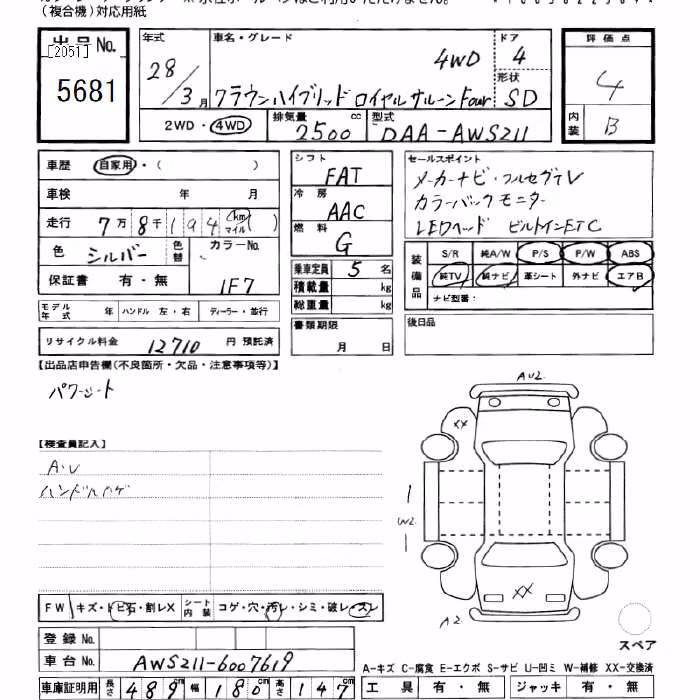 (複合機)対応用紙
出品No.
[2051]
5681
年式 車名・グレード ドア 評価点
28/3月 4WD 4
クラウンハイブリッド ロイヤルサルーンFour 形状 SD 4
2WD・4WD 排気量 2500 cc 型式 DAA-AWS211 内装 B
車歴 自家用・( )
車検 年 月
走行 7万8千194 km マイル
色 シルバー 色替 カラーNo. 1F7
保証書 有・無
モデル年式 年 ハンドル 左・右 ディーラー・並行
リサイクル料金 12710 円 預託済
シフト FAT
冷房 AAC
燃料 G
乗車定員 5 名
積載量 kg
総重量 kg
書類期限
月 日
セールスポイント
メーカーナビ・フルセグTV
カラーバックモニター
LEDヘッド ビルトインETC
装備品 S/R 純A/W P/S P/W ABS
純TV 純ナビ 革シート 外ナビ エアB
ナビ型番:
後日品
【出品店申告欄(不良箇所・欠品・注意事項等)】
パワーシート
【検査員記入】
A・U
ハンドルカゲ
AU2
XX
W2
XX
A2
スペア
FW キズ・トビ石・割レX シート内装 コゲ・穴・汚レ・シミ・破レ・スレ
登録No.
車台No. AWS211-6007619
車庫証明用 長さ 489cm 幅 180cm 高さ 147cm
A-キズ C-腐食 E-エクボ S-サビ U-凹ミ W-補修 XX-交換済
工具 有・無 ジャッキ 有・無